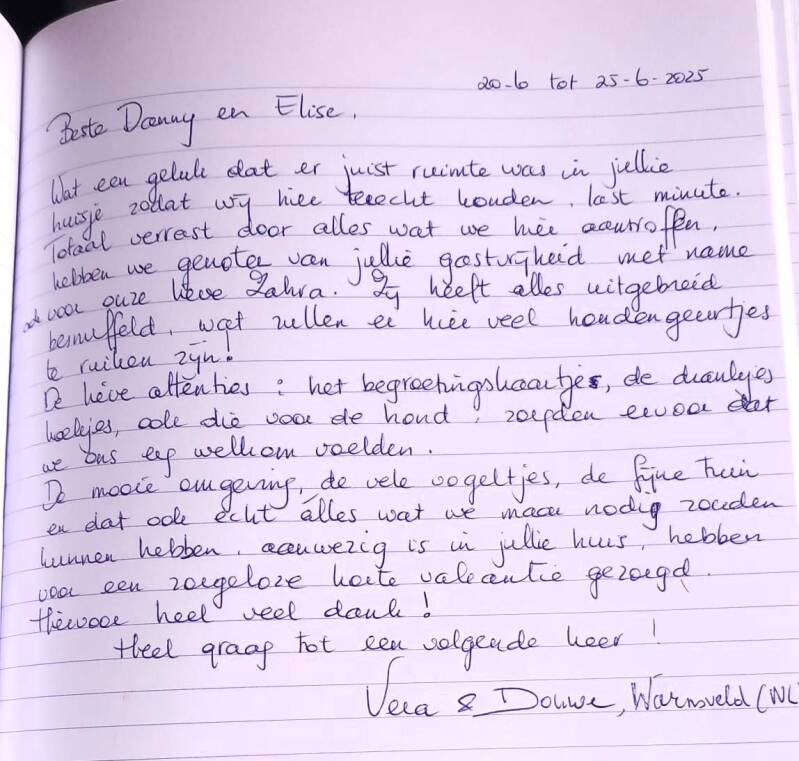 20-6 tot 25-6-2025
Beste Danny en Elise,
Wat een geluk dat er juist ruimte was in jullie
huisje zodat wij hier terecht konden, last minute.
Totaal verrast door alles wat we hier aantroffen,
hebben we genoten van jullie gastvrijheid met name
ook voor onze lieve Zahra. Zij heeft alles uitgebreid
besnuffeld, wat zullen er hier veel hondengeurtjes
te ruiken zijn!
De lieve attenties: het begroetingskaartje, de drankjes
koekjes, ook die voor de hond, zorgden ervoor dat
we ons erg welkom voelden.
De mooie omgeving, de vele vogeltjes, de fijne tuin
en dat ook écht álles wat we maar nodig zouden
kunnen hebben, aanwezig is in jullie huis, hebben
voor een zorgeloze korte vakantie gezorgd.
Hiervoor heel veel dank!
Heel graag tot een volgende keer!
Vera & Douwe, Warnsveld (NL)